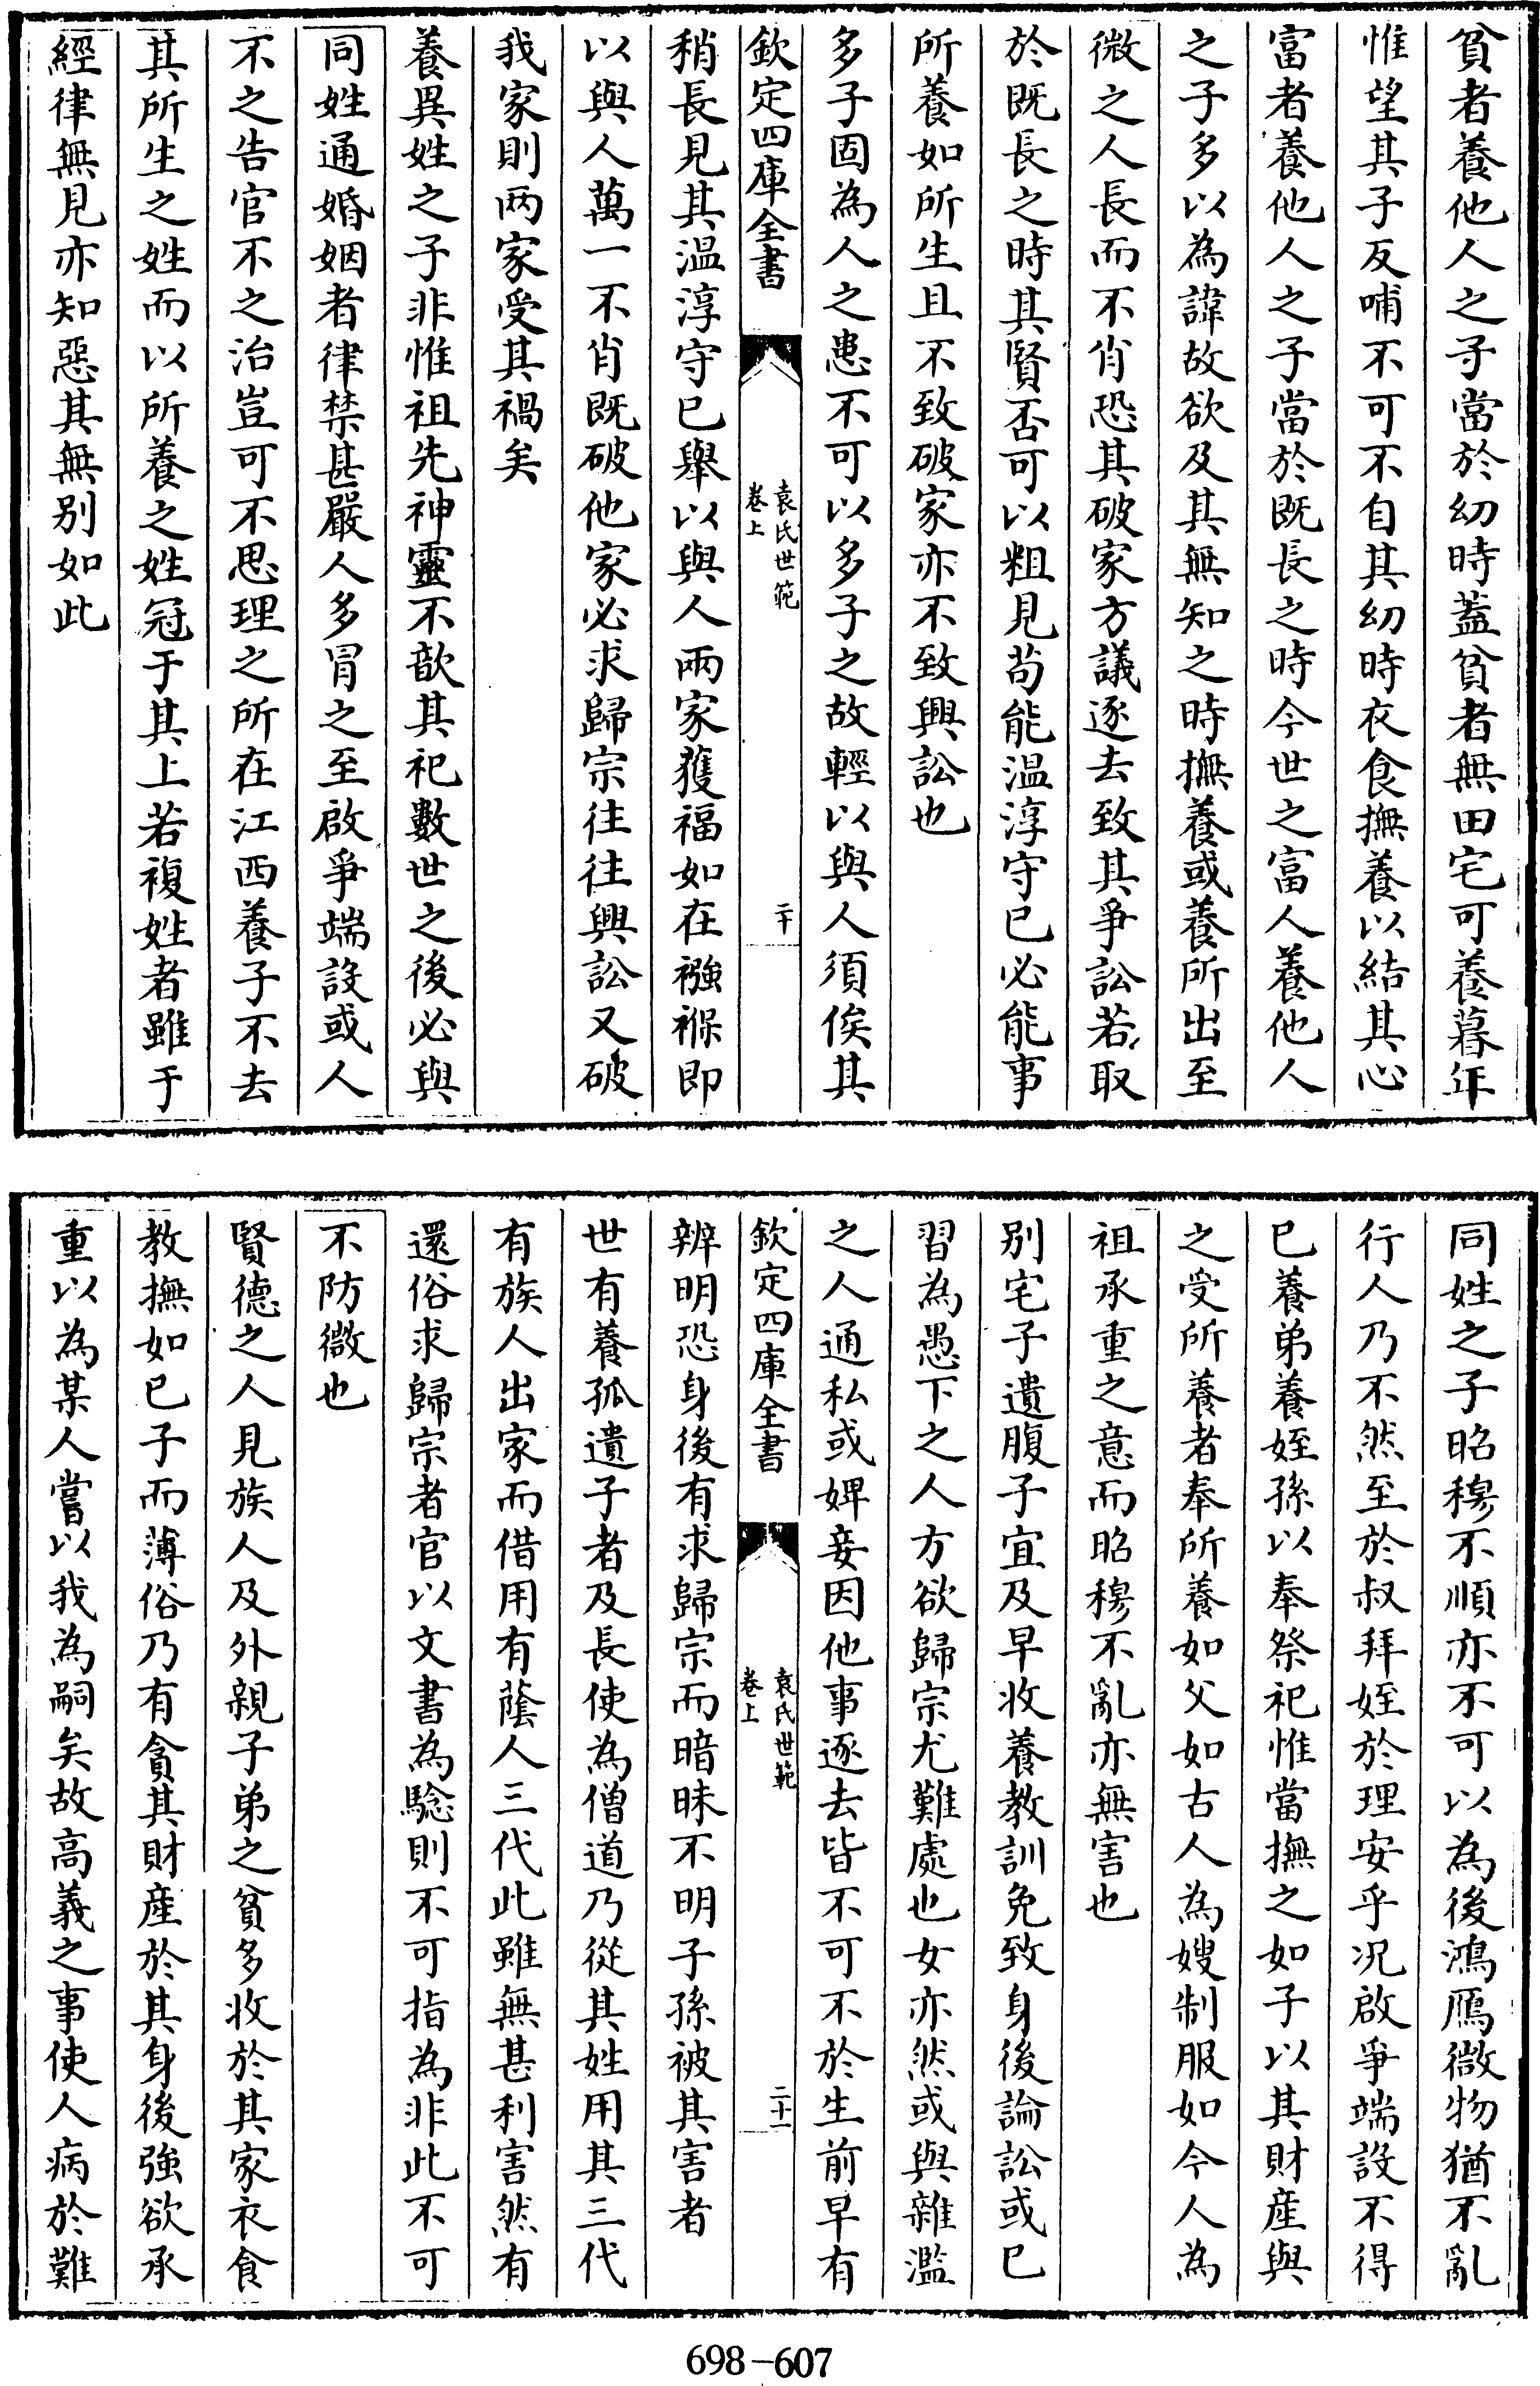 貧者養他人之子當於幼時蓋貧者無田宅可養暮年
惟望其子反哺不可不自其幼時衣食撫養以結其心
富者養他人之子當於既長之時今世之富人養他人
之子多以為諱故欲及其無知之時撫養或養所出至
微之人長而不肖恐其破家方議逐去致其爭訟若取
於既長之時其賢否可以粗見苟能温淳守已必能事
所養如所生且不致破家亦不致興訟也
多子固為人之患不可以多子之故輕以與人須俟其
欽定四庫全書
袁氏世範
卷上
二十
稍長見其温淳守已舉以與人兩家獲福如在襁褓即
以與人萬一不肖既破他家必求歸宗往往興訟又破
我家則兩家受其禍矣
養異姓之子非惟祖先神靈不歆其祀數世之後必與
同姓通婚姻者律禁甚嚴人多冒之至啟爭端設或人
不之告官不之治豈可不思理之所在江西養子不去
其所生之姓而以所養之姓冠于其上若複姓者雖于
經律無見亦知惡其無别如此
同姓之子昭穆不順亦不可以為後鴻鴈微物猶不亂
行人乃不然至於叔拜姪於理安乎況啟爭端設不得
已養弟養姪孫以奉祭祀惟當撫之如子以其財産與
之受所養者奉所養如父如古人為嫂制服如今人為
祖承重之意而昭穆不亂亦無害也
别宅子遺腹子宜及早收養教訓免致身後論訟或已
習為愚下之人方欲歸宗尤難處也女亦然或與雜濫
之人通私或婢妾因他事逐去皆不可不於生前早有
欽定四庫全書
袁氏世範
卷上
二十一
辨明恐身後有求歸宗而暗昧不明子孫被其害者
世有養孤遺子者及長使為僧道乃從其姓用其三代
有族人出家而借用有蔭人三代此雖無甚利害然有
還俗求歸宗者官以文書為騐則不可指為非此不可
不防微也
賢德之人見族人及外親子弟之貧多收於其家衣食
教撫如已子而薄俗乃有貪其財産於其身後強欲承
重以為某人嘗以我為嗣矣故高義之事使人病於難
698-607